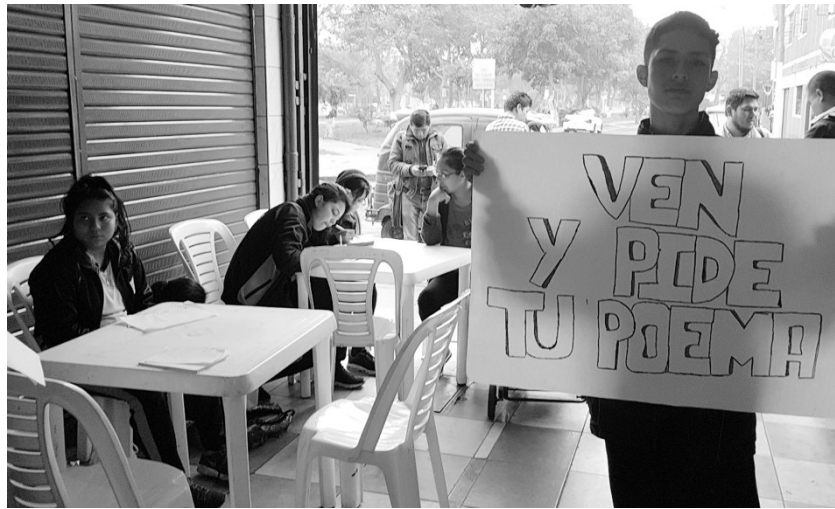 VEN
Y PIDE
TU POEMA